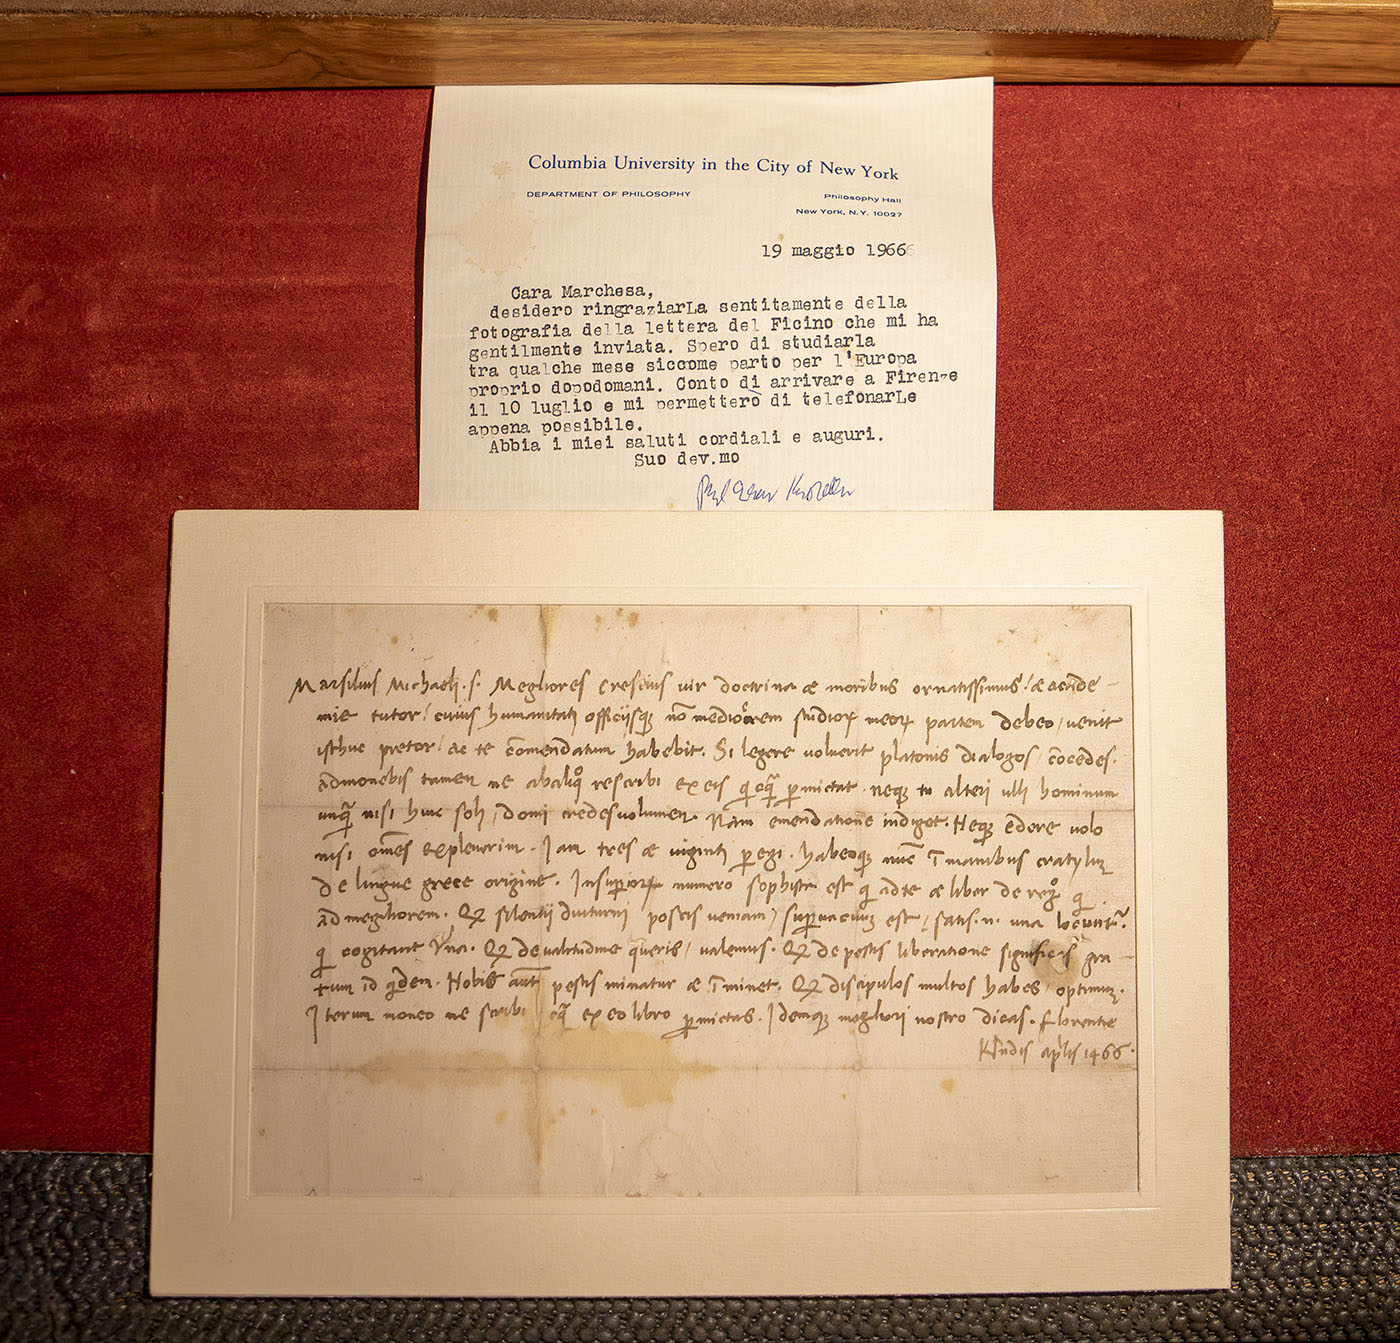 Columbia University in the City of New York
DEPARTMENT OF PHILOSOPHY
Philosophy Hall
New York, N.Y. 10027
19 maggio 1966
Cara Marchesa,
desidero ringraziarLa sentitamente della
fotografia della lettera del Ficino che mi ha
gentilmente inviata. Spero di studiarla
tra qualche mese siccome parto per l'Europa
proprio dopodomani. Conto di arrivare a Firenze
il 10 luglio e mi permetterò di telefonarLe
appena possibile.
Abbia i miei saluti cordiali e auguri.
Suo dev.mo
Marsilius Michaeli. s. Megliores crescius vir doctrina æ moribus ornatissimus / æ acade-
mie tutor / cuius humanitati officijsqꝫ nō mediocrem studioꝝ meoꝝ partem debeo / venit
isthuc pretor / ac te cōmendatum habebit. Si legere voluerit platonis dialogos / cōcedes.
admonebis tamen ne rescribi ex eis permictat. neqꝫ tu alteri ulli hominum
nisi huic soli / domi credes volumen. Nam emendatione indiget. Neqꝫ edere volo
nisi omēs expleverim. Iam tres æ viginti peregi. habeoqꝫ nūc ī manibus cratylum
de lingue grece origine. numero sophista est ad te æ liber de
ad megliorem. silentij diuturni poscis veniam / est / satis .n. una
cogitare de valitudine queris / valemus. de pestis liberatione significas gra-
tum id Nobis aut pestis minatur æ īminet. discipulos multos habes / optimum.
Iterum moneo ne scribi ex eo libro permictas. Idemqꝫ megliori nostro dicas. florentie
aplis 1466.